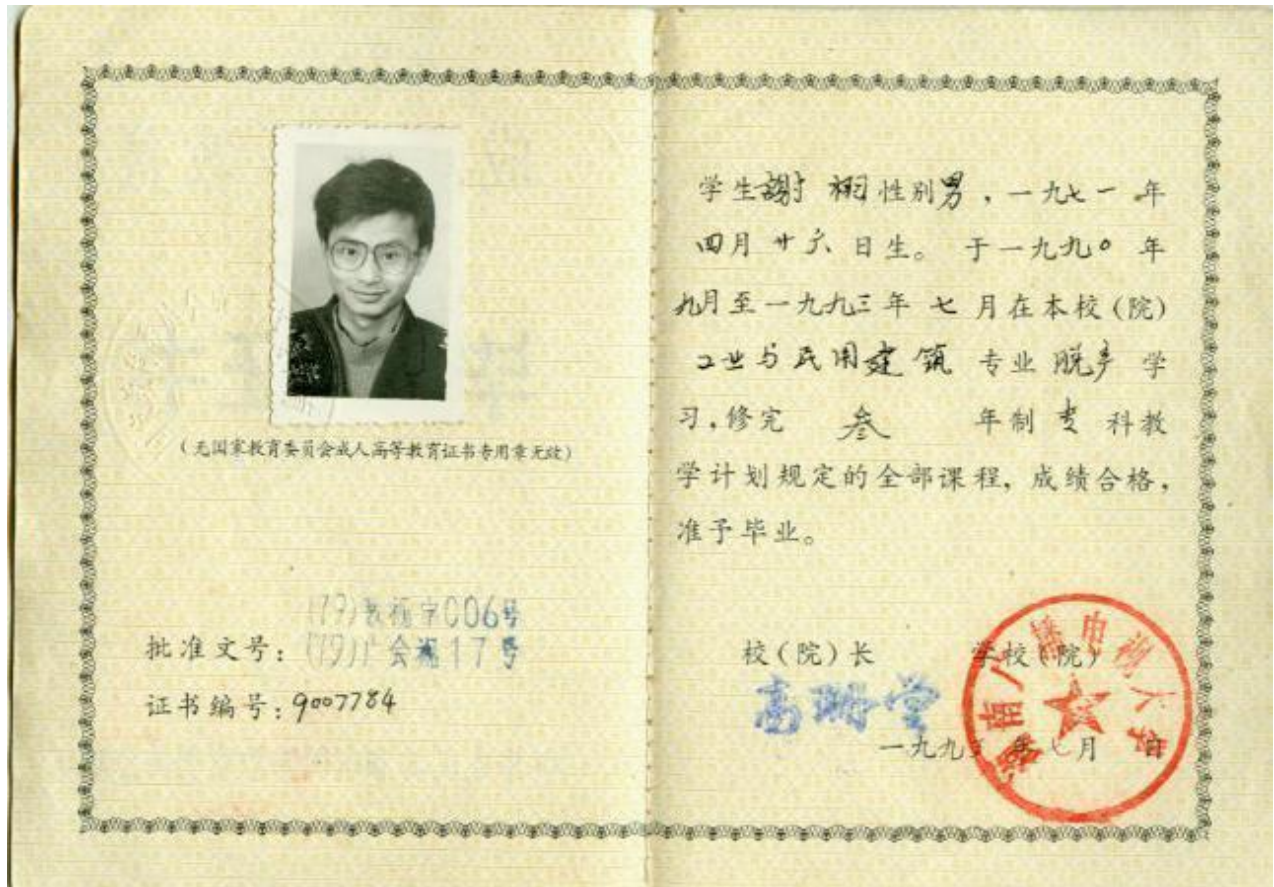 (无国家教育委员会成人高等教育证书专用章无效)
(79)教视字006号
批准文号: (79)广会视17号
证书编号: 9007784
学生謝栩性别男,一九七一年
四月廿六日生。于一九九〇年
九月至一九九三年七月在本校(院)
工业与民用建筑专业脱产学
习,修完叁年制专科教
学计划规定的全部课程,成绩合格,
准予毕业。
校(院)长 学校(院)
高
一九九三年七月 日
广播电视大学